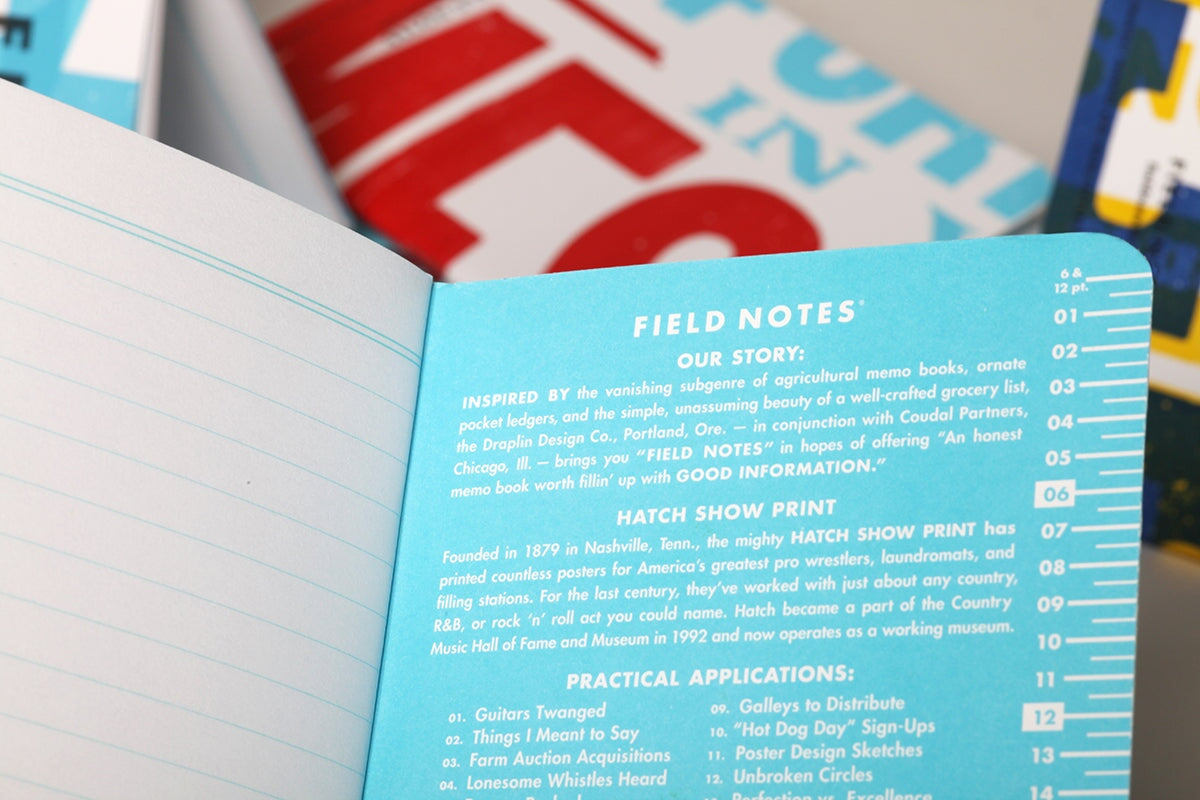 IN
FIELD NOTES
OUR STORY:
INSPIRED BY the vanishing subgenre of agricultural memo books, ornate
pocket ledgers, and the simple, unassuming beauty of a well-crafted grocery list,
the Draplin Design Co., Portland, Ore. — in conjunction with Coudal Partners,
Chicago, Ill. — brings you “FIELD NOTES” in hopes of offering “An honest
memo book worth fillin’ up with GOOD INFORMATION.”
HATCH SHOW PRINT
Founded in 1879 in Nashville, Tenn., the mighty HATCH SHOW PRINT has
printed countless posters for America’s greatest pro wrestlers, laundromats, and
filling stations. For the last century, they’ve worked with just about any country,
R&B, or rock ‘n’ roll act you could name. Hatch became a part of the Country
Music Hall of Fame and Museum in 1992 and now operates as a working museum.
PRACTICAL APPLICATIONS:
01. Guitars Twanged
02. Things I Meant to Say
03. Farm Auction Acquisitions
04. Lonesome Whistles Heard
09. Galleys to Distribute
10. “Hot Dog Day” Sign-Ups
11. Poster Design Sketches
12. Unbroken Circles
Perfection vs. Excellence
6 &
12 pt.
01
02
03
04
05
06
07
08
09
10
11
12
13
14